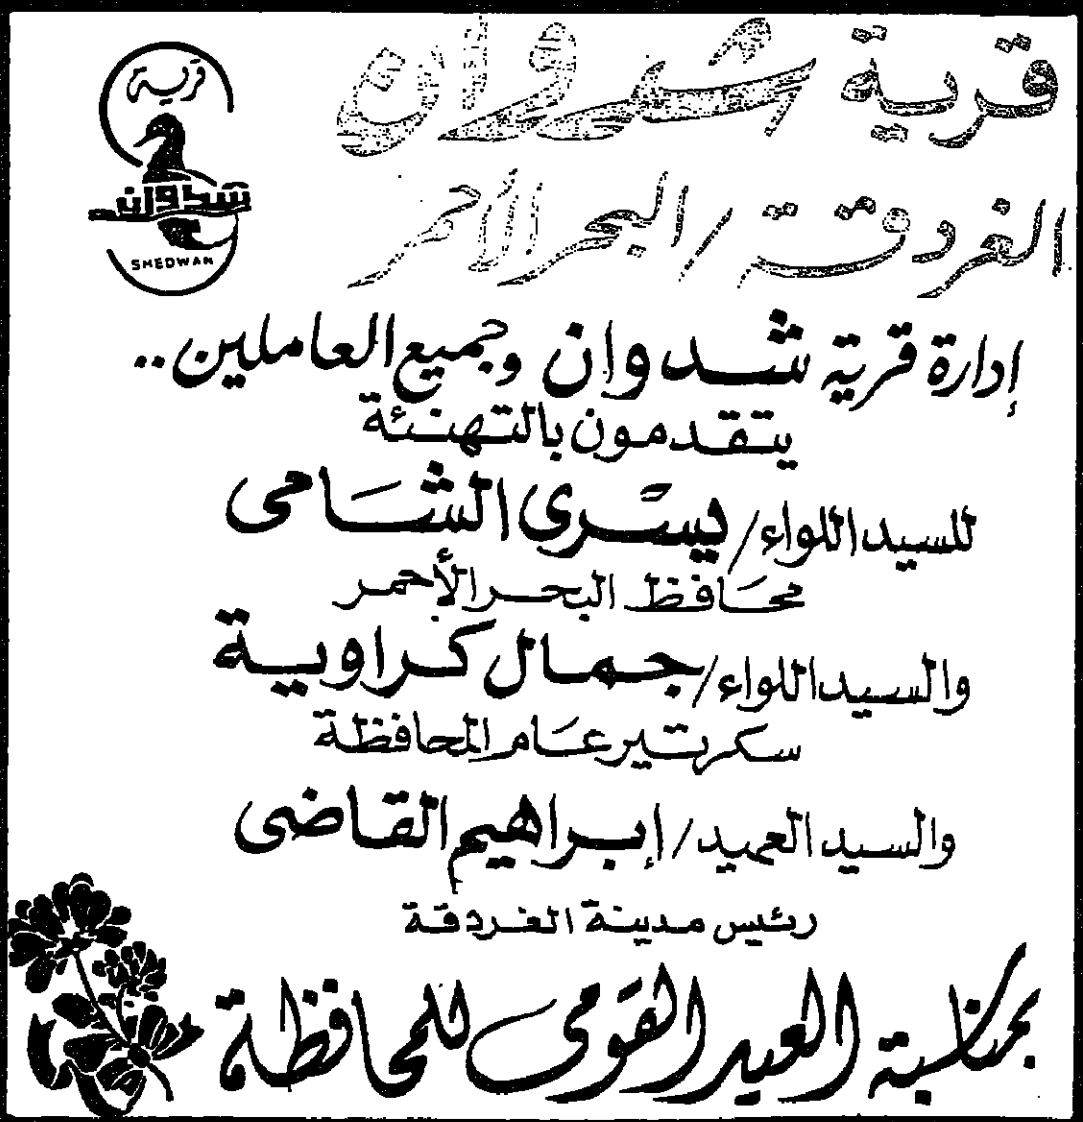 قرية شدوان
الغردقة / البحر الأحمر
قرية
شدوان
SHEDWAN
إدارة قرية شدوان وجميع العاملين ..
يتقدمون بالتهنئة
للسيد اللواء / يسرى الشامى
محافظ البحر الأحمر
والسيد اللواء / جمال كراوية
سكرتير عام المحافظة
والسيد العميد / إبراهيم القاضى
رئيس مدينة الغردقة
بمناسبة العيد القومى للمحافظة